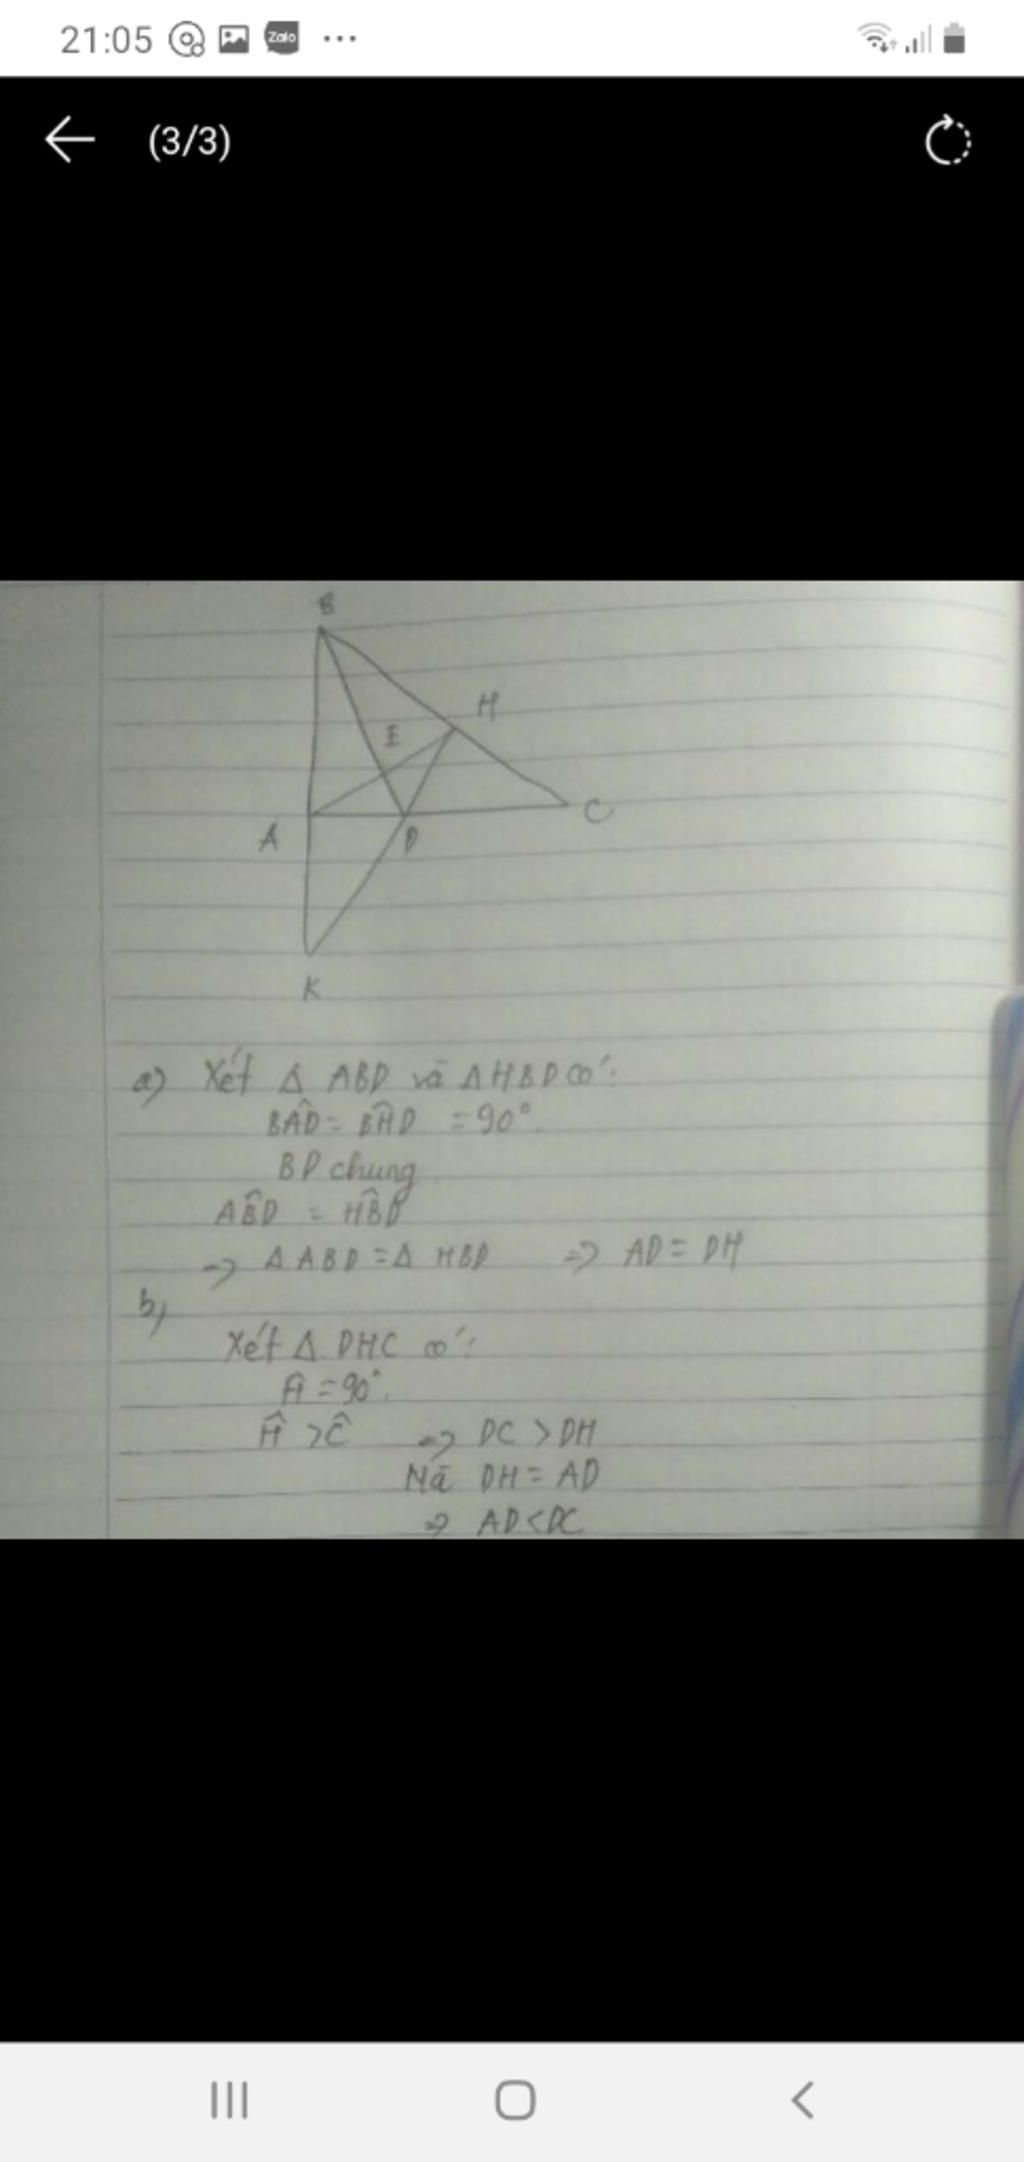 21:05 Zalo ...
(3/3)
B
H
E
A
D
C
K
a) Xét Δ ABD và ΔHBD có:
BÂD = BĤD = 90°
BD chung
AB̂D = HB̂D
=> Δ ABD = Δ HBD => AD = DH
b)
Xét Δ DHC có:
Ĥ = 90°
Ĥ > Ĉ => DC > DH
Mà DH = AD
=> AD < DC